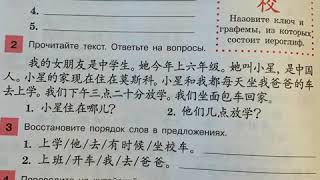 4.
校
Назовите ключ и
графемы, из которых
состоит иероглиф.
2 Прочитайте текст. Ответьте на вопросы.
我的女朋友是中学生。她今年上六年级。她叫小星,是中国
人。小星的家现在住在莫斯科。小星和我都每天坐我爸爸的车
去上学。我们下午三点二十分放学。我们坐面包车回家。
1. 小星住在哪儿? 2. 他们几点放学?
3 Восстановите порядок слов в предложениях.
1. 上学/他/去/有时候/坐校车。
2. 上班/开车/我/去/爸爸。